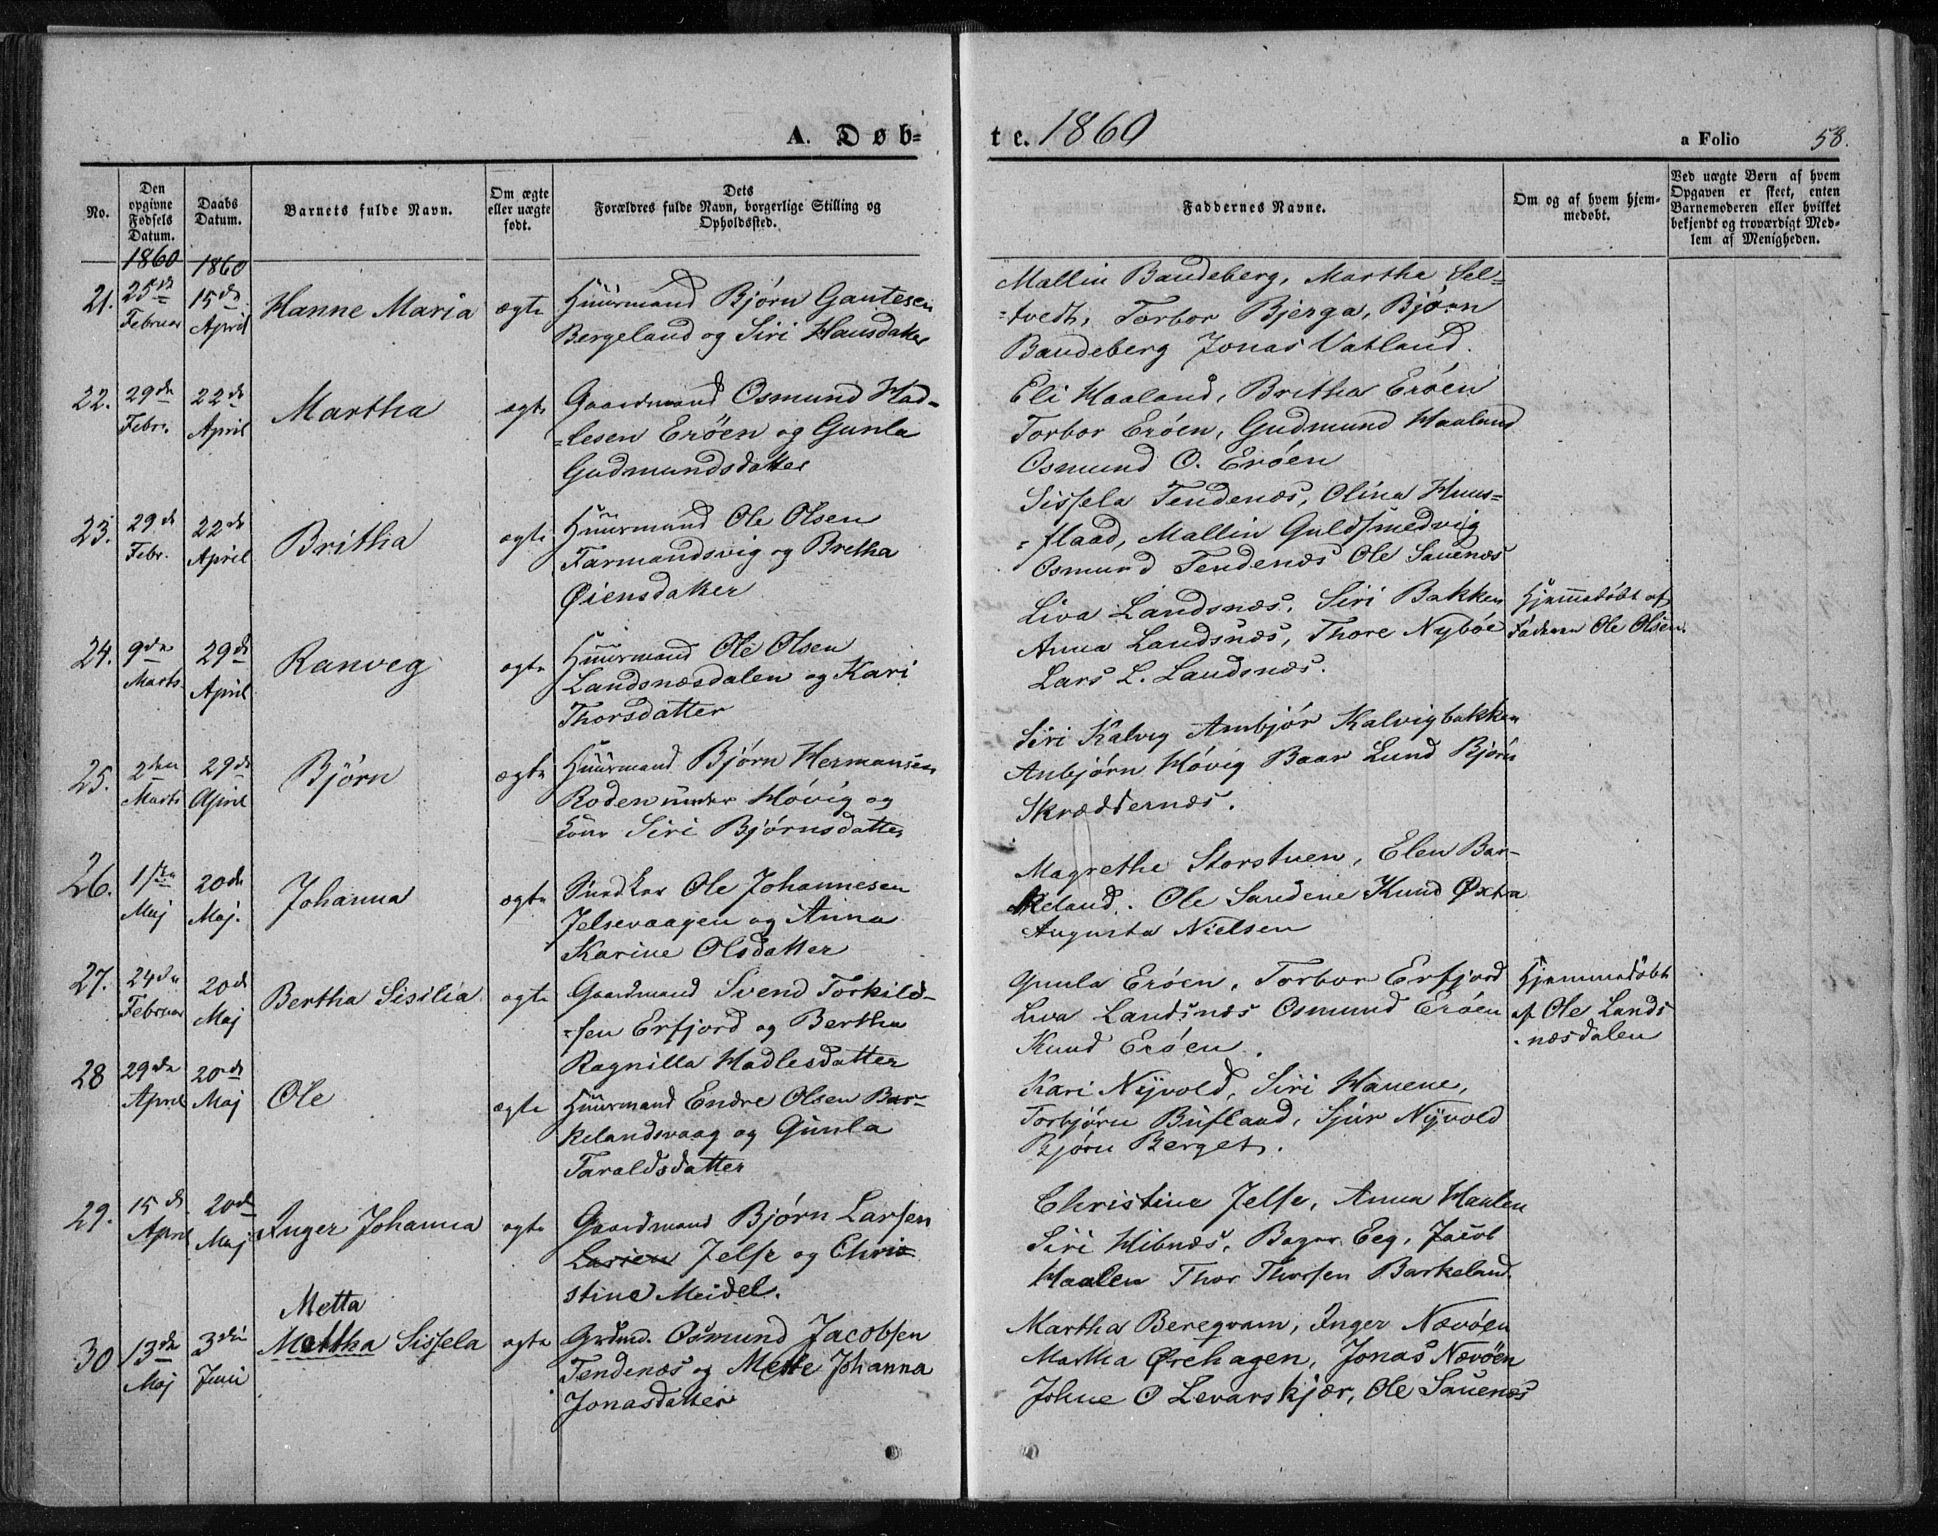 A. Døb-
te. 1860
a Folio 58.
No.
Den opgivne Fødsels Datum.
Daabs Datum.
Barnets fulde Navn.
Om ægte eller uægte født.
Dets Forældres fulde Navn, borgerlige Stilling og Opholdssted.
Faddernes Navne.
Om og af hvem hjemmedøbt.
Ved uægte Børn af hvem Opgaven er skeet, enten Barnemoderen eller hvilket bekjendt og troværdigt Medlem af Menigheden.
1860 1860
21. 25de Februar 15de April Hanne Maria ægte
Huusmand Bjørn Gautesen
Bergeland og Siri Hansdatter
Mallin Baudeberg, Martha Sel-
-tvedt, Torbor Bjerga, Bjørn
Baudeberg Jonas Vatland.
22. 29de Febr. 22de April Martha ægte
Gaardmand Osmund Had-
-lesen Erøen og Gunla
Gudmundsdatter
Eli Haaland, Britha Erøen
Torbor Erøen, Gudmund Haaland
Osmund O. Erøen
23. 29de Febr. 22de April Britha ægte
Huusmand Ole Olsen
Farmandsvig og Bretha
Øiensdatter
Sissela Tendenæs, Olina Huus-
-flaad, Mallin Guldsmedvig
Osmund Tendenæs Ole Sauenæs
24. 9de Marts 29de April Ranveg ægte
Huusmand Ole Olsen
Landsnæsdalen og Kari
Thorsdatter
Liva Landsnæs, Siri Bakken
Anna Landsnæs, Thore Nybøe
Lars L. Landsnæs.
Hjemmedøbt af
Faderen Ole Olsen.
25. 2den Marts 29de April Bjørn ægte
Huusmand Bjørn Hermansen
Roden under Høvig og
Kone Siri Bjørnsdatter
Siri Kalvig Ambjør Kalvigbakken
Anbjørn Høvig Baar Lund Bjørn
Skræddernæs.
26. 1ste Maj 20de Maj. Johanna ægte
Ole Johannesen
Jelsevaagen og Anna
Karine Olsdatter
Magrethe Storstuen, Elen Bar-
keland. Ole Sandene Knud Øxtra
Augusta Nielsen
27. 24de Februar 20de Maj Bertha Sisilia ægte
Gaardmand Svend Torkild-
-sen Erfjord og Bertha
Ragnilla Hadlesdatter
Gunla Erøen, Torbor Erfjord
Liva Landsnæs Osmund Erøen
Knud Erøen.
Hjemmedøbt
af Ole Lands
-næsdalen
28 29de April 20de Maj Ole ægte
Huusmand Endre Olsen Bar-
kelandsvaag og Gunla
Taraldsdatter
Kari Nyvold, Siri Hauene,
Torbjørn Bufland, Sjur Nyvold
Bjørn Berget.
29. 15de April 20de Maj Inger Johanna ægte
Gaardmand Bjørn Larsen
Larsen Jelse og Chri-
stine Meidel.
Christine Jelse, Anna Haalen
Siri Hibnæs, Eeg, Jacob
Haalen Thor Thorsen Barkeland.
Metta
30 13de Maj 3die Juni Mettha Sissela ægte
Grdmd. Osmund Jacobsen
Tendenæs og Mette Johanna
Jonasdatter
Martha Bereqvam, Inger Nævøen
Martha Ørehagen, Jonas Nævøen
Johne O Levarskjær, Ole Sauenæs